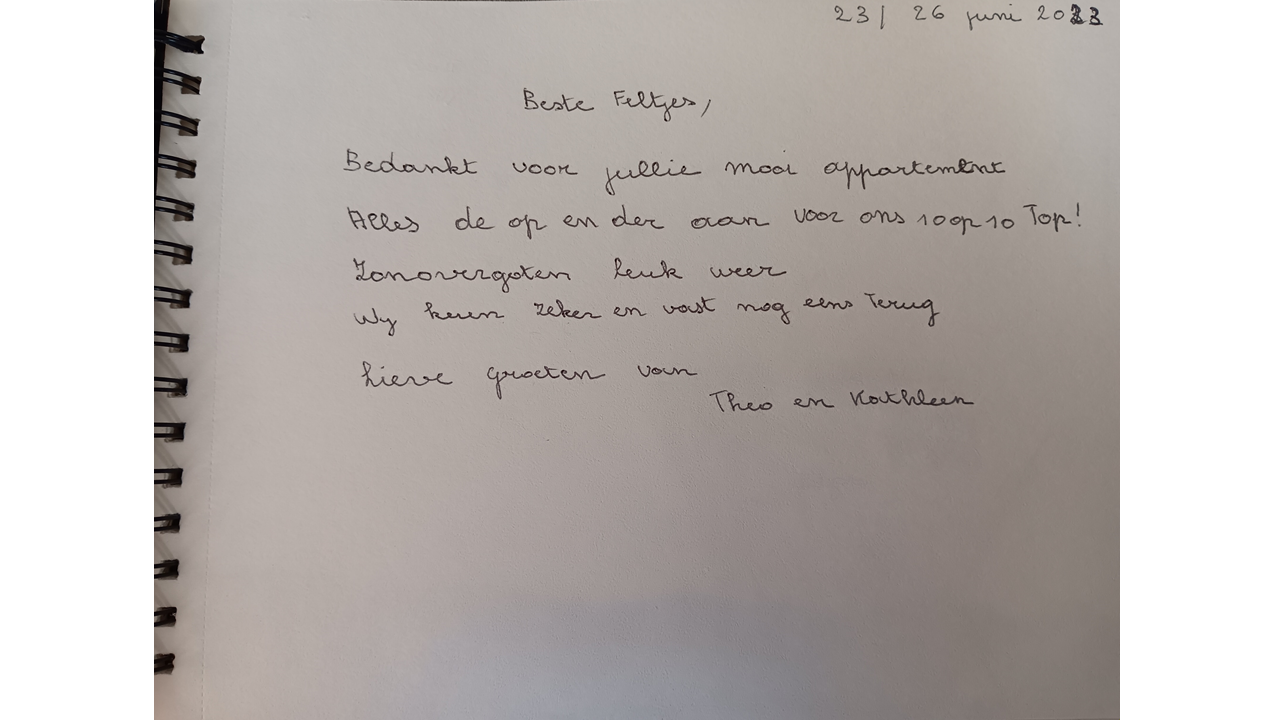 23/ 26 juni 2023
Beste Feltjes,
Bedankt voor jullie mooi appartement
Alles de op en der aan voor ons 10 op 10 Top!
Zonovergoten leuk weer
Wij keren zeker en vast nog eens Terug
lieve groeten van
Theo en Kathleen